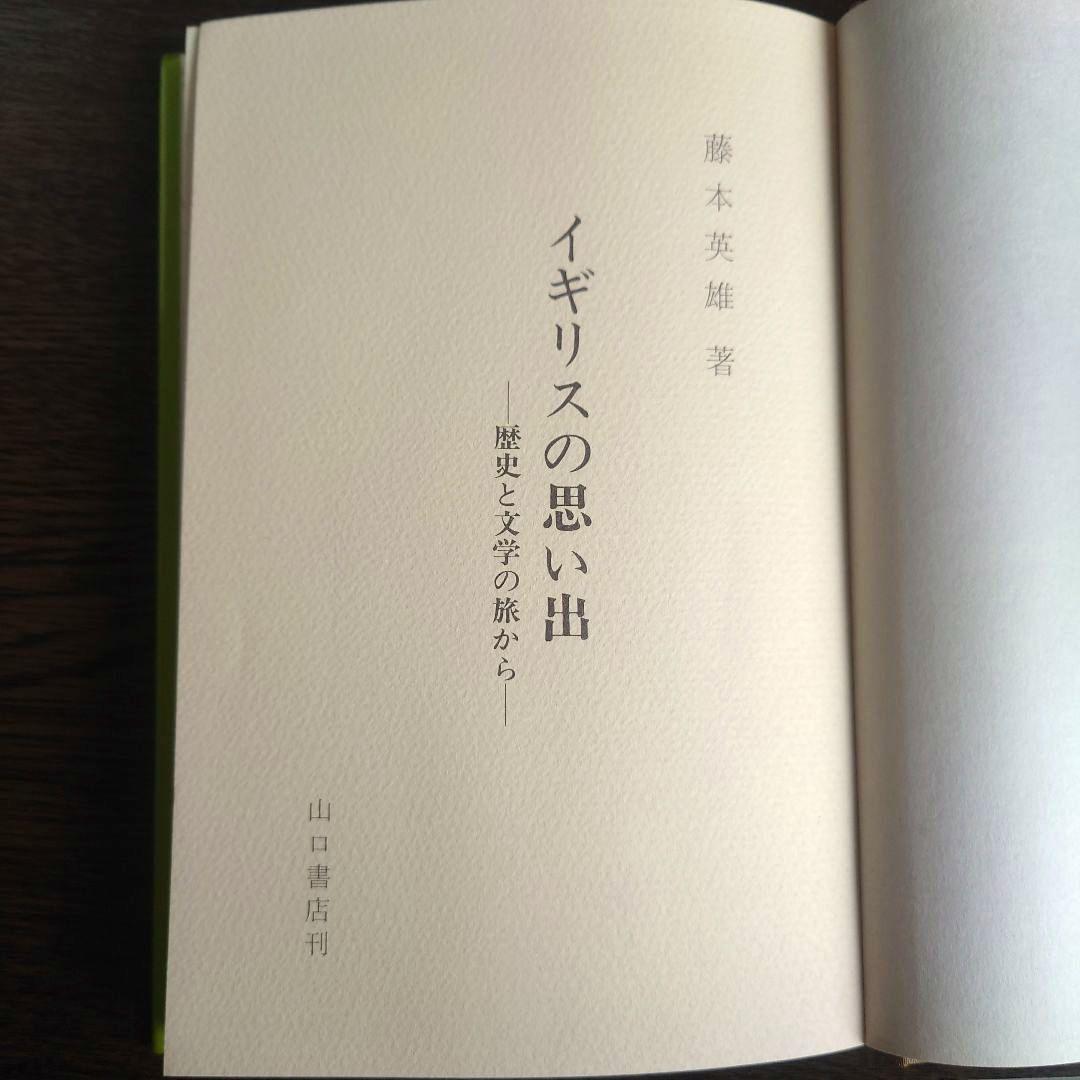 藤本英雄 著
イギリスの思い出
―歴史と文学の旅から―
山口書店刊